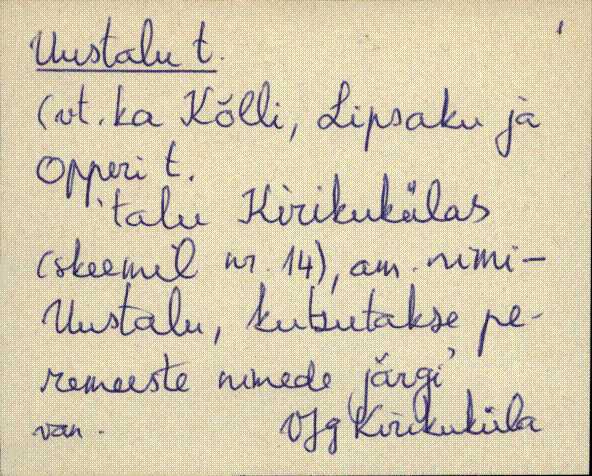 Uustalu t.
(vt. ka Kõlli, Lipsaku ja
Opperi t.
'talu Kirikukülas
(skeemil nr. 14), am. nimi-
Uustalu, kutsutakse pe-
remeeste nimede järgi'
van. VJg Kirikuküla